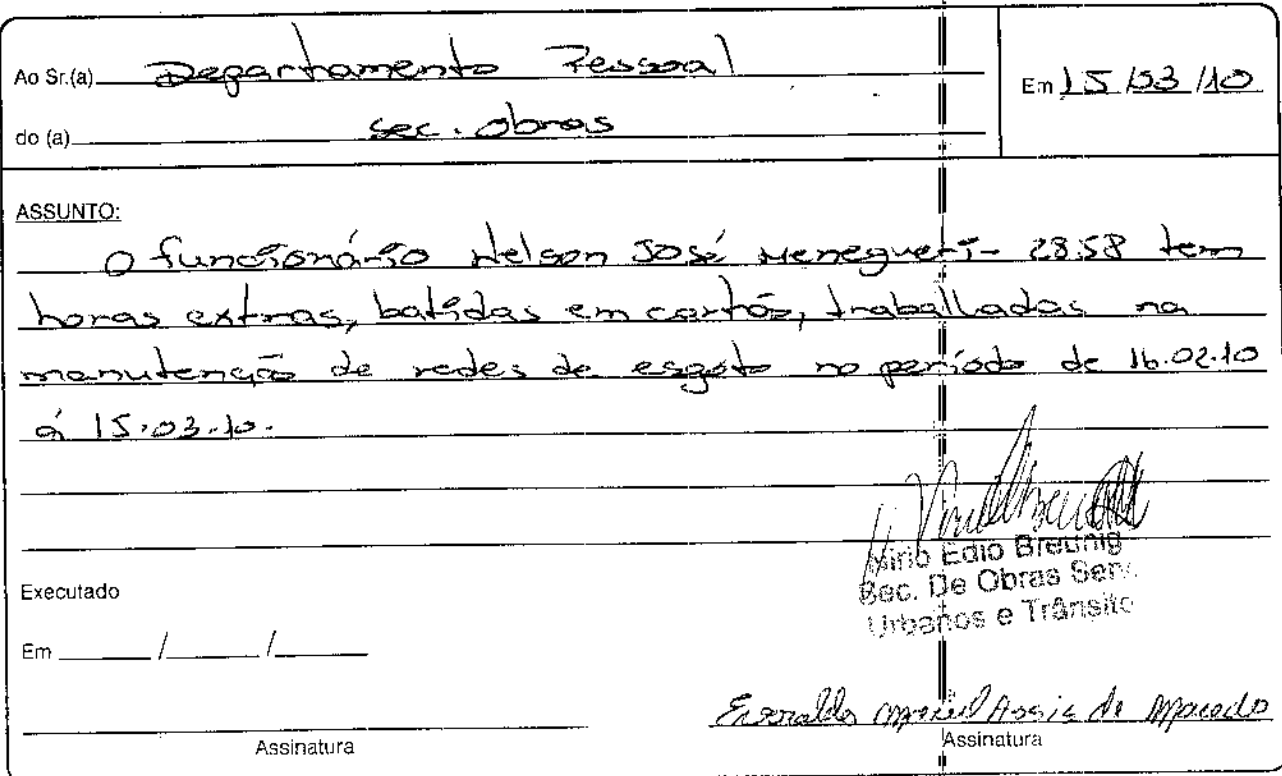 Ao Sr.(a) Departamento Pessoal
Em 15/03/10
do (a) sec. obras
ASSUNTO:
O funcionário Nelson José Menegueti - 2858 tem
horas extras, batidas em cartão, traballadas na
manutenção de redes de esgoto no período de 16.02.10
á 15.03.10.
Edio Breunig
Sec. De Obras Serv.
Urbanos e Trânsito
Executado
Em ____/____/____
Assis de Macedo
Assinatura
Assinatura